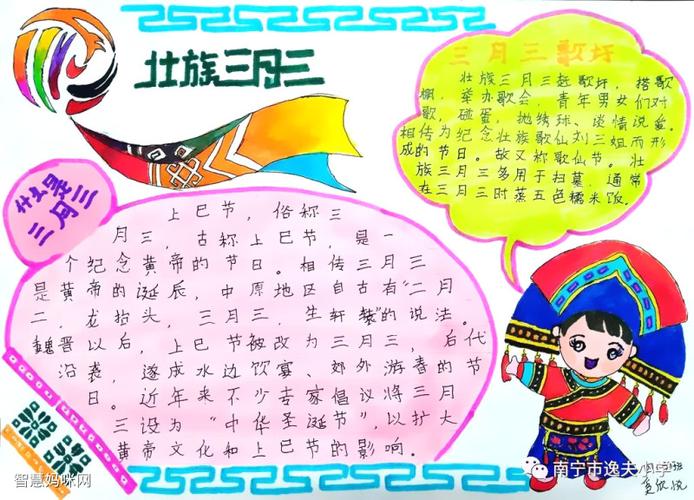 壮族三月三
三月三歌圩
壮族三月三赶歌圩，搭歌
棚，举办歌会，青年男女们对
歌，碰蛋，抛绣球、谈情说爱。
相传为纪念壮族歌仙刘三姐而形
成的节日。故又称歌仙节。壮
族三月三多用于扫墓，通常
在三月三时蒸五色糯米饭。
什么是
三月三
上巳节，俗称三
月三，古称上巳节，是一
个纪念黄帝的节日。相传三月三
是黄帝的诞辰，中原地区自古有“二月
二，龙抬头，三月三，生轩辕”的说法。
魏晋以后，上巳节被改为三月三，后代
沿袭，遂成水边饮宴、郊外游春的节
日。近年来不少专家倡议将三月
三设为“中华圣诞节”，以扩大
黄帝文化和上巳节的影响。
智慧妈咪网
南宁市逸夫小学